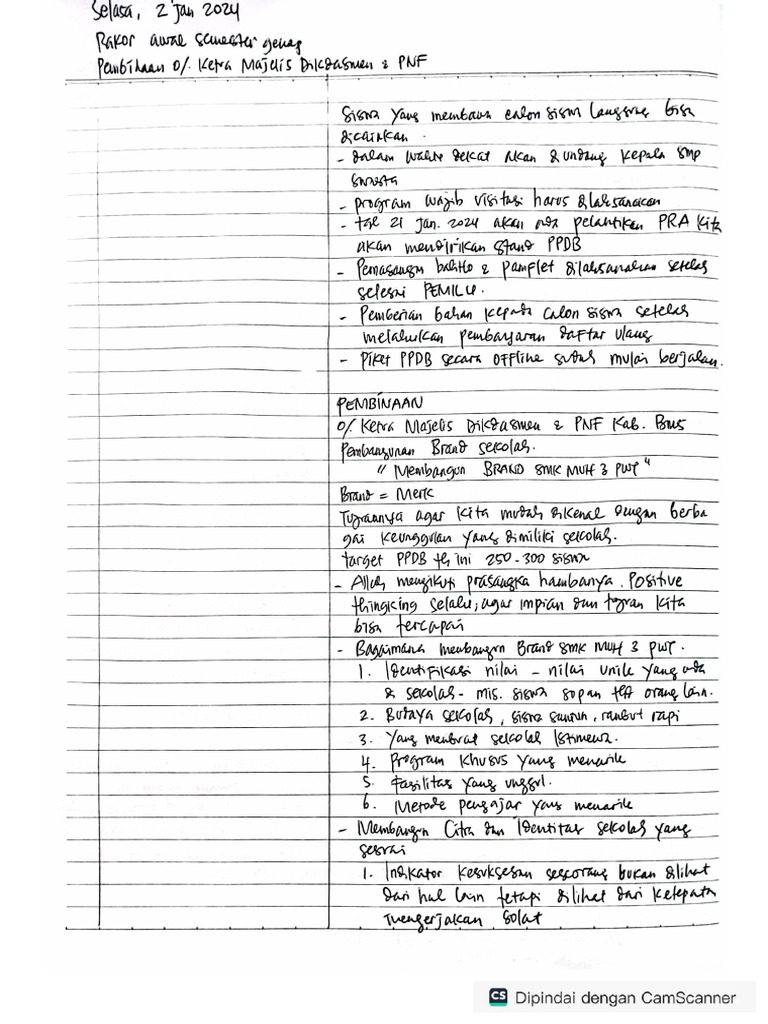 Selasa, 2 Jan 2024
Rakor awal semester genap
Pembinaan o/. Ketua Majelis Dikdasmen & PNF
Siswa yang membawa calon siswa langsung bisa
dicairkan.
- dalam waktu dekat akan diundang kepala SMP
Swasta
- program wajib visitasi harus dilaksanakan
- tgl 21 Jan. 2024 akan ada pelantikan PRA kita
akan mendirikan stand PPDB
- Pemasangan baliho & pamflet dilaksanakan setelah
selesai PEMILU.
- Pemberian bahan kepada calon siswa setelah
melakukan pembayaran daftar ulang
- Piket PPDB secara offline sudah mulai berjalan.
PEMBINAAN
o/. Ketua Majelis Dikdasmen & PNF Kab. Bms
Pembangunan Brand sekolah.
" Membangun BRAND SMK MUH 3 PWT "
Brand = Merk
Tujuannya agar kita mudah dikenal dengan berba
gai keunggulan yang dimiliki sekolah.
target PPDB th ini 250-300 siswa
- Allah mengikuti prasangka hambanya. Positive
thingking selalu, agar impian dan tujuan kita
bisa tercapai
- Bagaimana membangun Brand SMK MUH 3 PWT.
1. Identifikasi nilai - nilai unik yang ada
di sekolah - mis. siswa sopan thd orang lain.
2. Budaya sekolah, siswa santun, rambut rapi
3. Yang membuat sekolah Istimewa.
4. Program khusus yang menarik
5. Fasilitas yang unggul.
6. Metode pengajar yang menarik
- Membangun Citra dan Identitas sekolah yang
sesuai
1. Indikator kesuksesan seseorang bukan dilihat
dari hal lain tetapi dilihat dari ketepata
mengerjakan solat
CS Dipindai dengan CamScanner